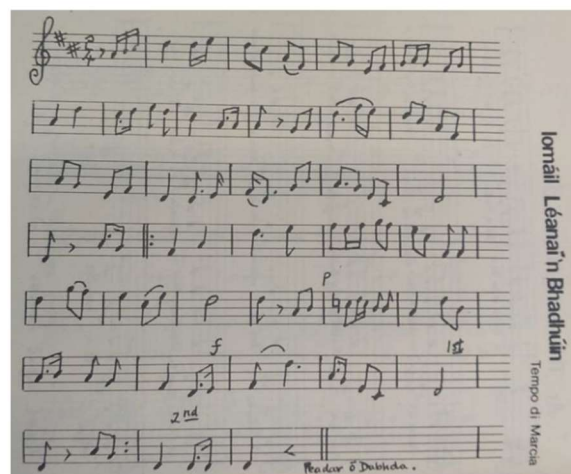 Iomáil Léanaí'n Bhadhúin
Tempo di Marcia
2
4
p
f
1st
2nd
Peadar ó Dabhda.